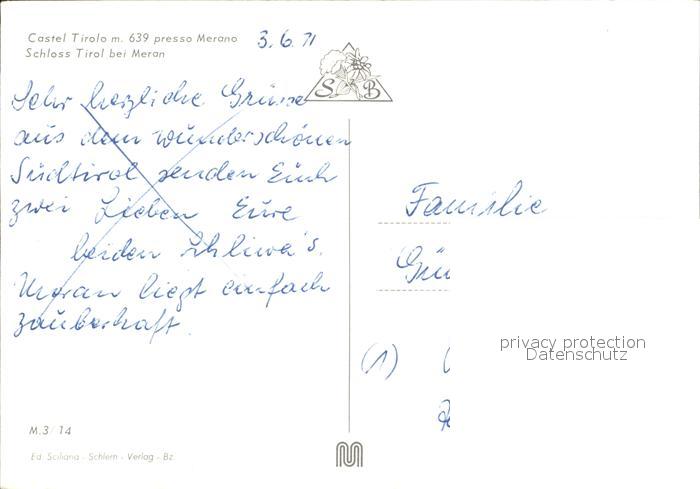 Castel Tirolo m. 639 presso Merano
Schloss Tirol bei Meran
3.6.71
S B
Sehr herzliche Grüsse
aus dem wunderschönen
Südtirol senden Euch
zwei Lieben Eure
beiden
Meran liegt einfach
zauberhaft.
Familie
(1)
privacy protection
Datenschutz
M.3/14
Ed. Sciliana - Schlern - Verlag - Bz.